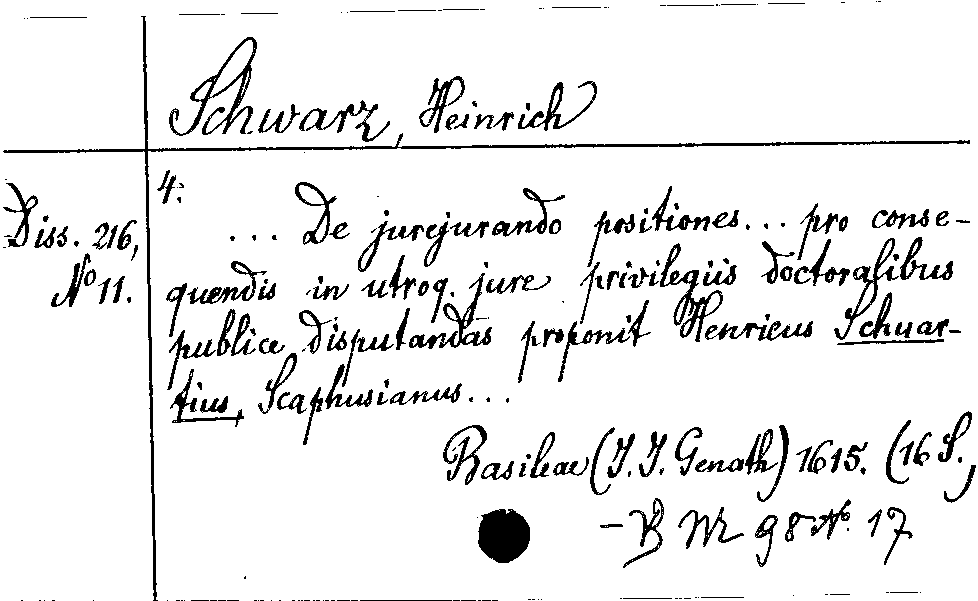 Schwarz, Heinrich
4:
Diss. 216,
No 11.
... De jurejurando positiones... pro conse-
quendis in utroq. jure privilegiis doctoralibus
publice disputandas proponit Henricus Schuar-
tius, Scaphusianus...
Basileae (J. J. Genath) 1615. (16 S.,
- B VII 98 No. 17